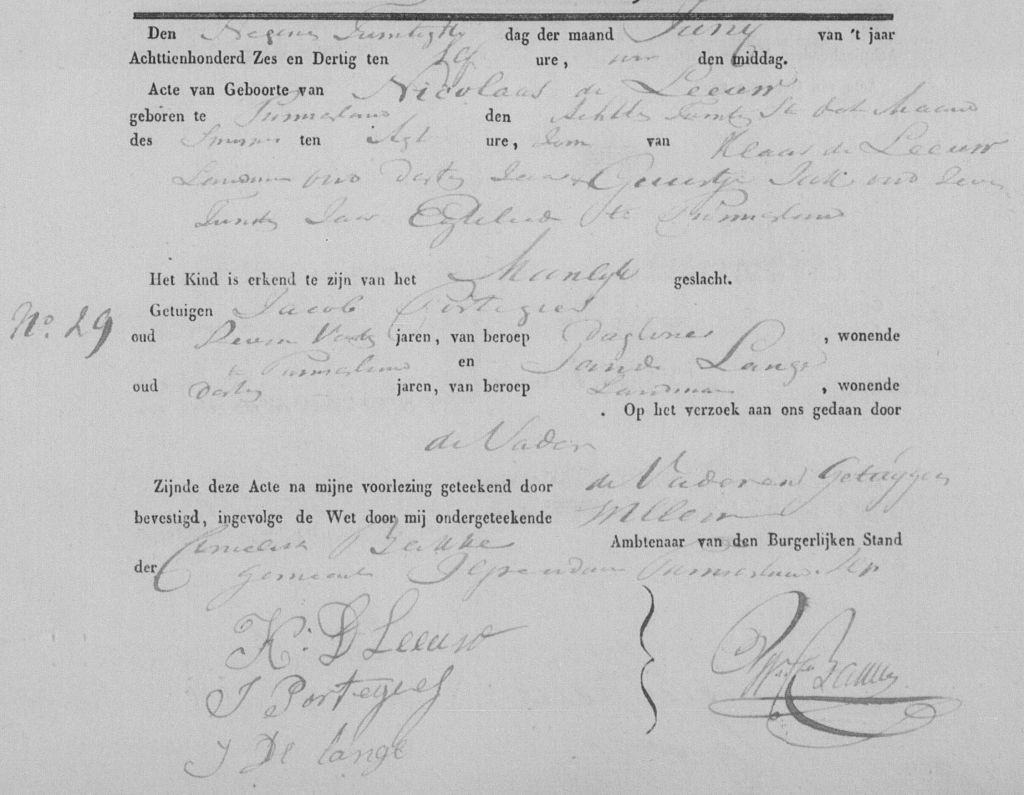 Den Negen Twintigste dag der maand Juny van 't jaar
Achttienhonderd Zes en Dertig ten Elf ure, voor den middag.
Acte van Geboorte van Nicolaas de Leeuw
geboren te Purmerland den Achtste Twintigste dat Maand
des ten Agt ure, van Klaas de Leeuw
Landman oud Dertig Jaar & Geertje Jak oud Zeven
Twintig Jaar Egtelied te Purmerland
Het Kind is erkend te zijn van het Manlijk geslacht.
No. 29
Getuigen Jacob Portegies
oud Zeven Veertig jaren, van beroep Daglooner, wonende
te Purmerland en Jan de Lange
oud Dertig jaren, van beroep Landman, wonende
. Op het verzoek aan ons gedaan door
de Vader
Zijnde deze Acte na mijne voorlezing geteekend door de Vader en Getuygen
bevestigd, ingevolge de Wet door mij ondergeteekende Willem
Cornelisz Bakker Ambtenaar van den Burgerlijken Stand
der gemeente Ilpendam Purmerland
K: D Leeuw
J Portegies
J De lange